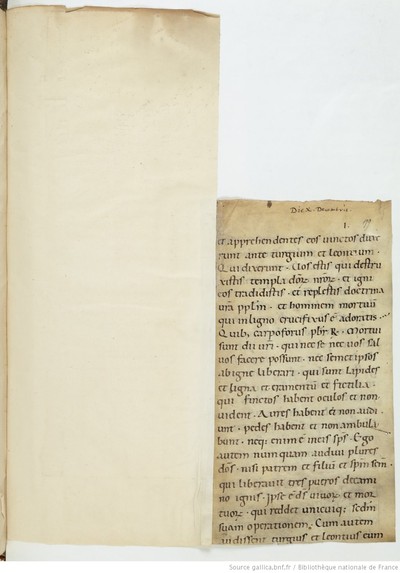 Die X. Decembris.
I.
et apprehendentes eos vinctos duxe
runt ante turgium et leontium.
Qui dixerunt. Vos estis qui destru
xistis templa dōꝝ nr̄oꝝ. et igni
eos tradidistis. et replestis doctrina
vr̄a ppl̄m. et hominem mortuū
qui in ligno crucifixus ē adoratis.
Quib; carpoforus pbr̄ R̄. Mortui
sunt dii vr̄i. qui nec se nec vos sal
vos facere possunt. nec semetipsos
ab igne liberari. qui sunt lapides
et ligna et eramentū et fictilia.
qui finctos habent oculos et non
vident. Aures habent et non audi
unt. pedes habent et non ambula
bunt. neq; enim ē in eis sp̄s. Ego
autem numquam audivi plures
dōs. nisi patrem et filiū et sp̄m sc̄m.
qui liberavit tres pueros de cami
no ignis. Ipse ē ds̄ vivoꝝ et mor
tuoꝝ. qui reddet unicuiq; scdm̄
suam operationem. Cum autem
vidissent turgius et leontius eum
Source gallica.bnf.fr / Bibliothèque nationale de France